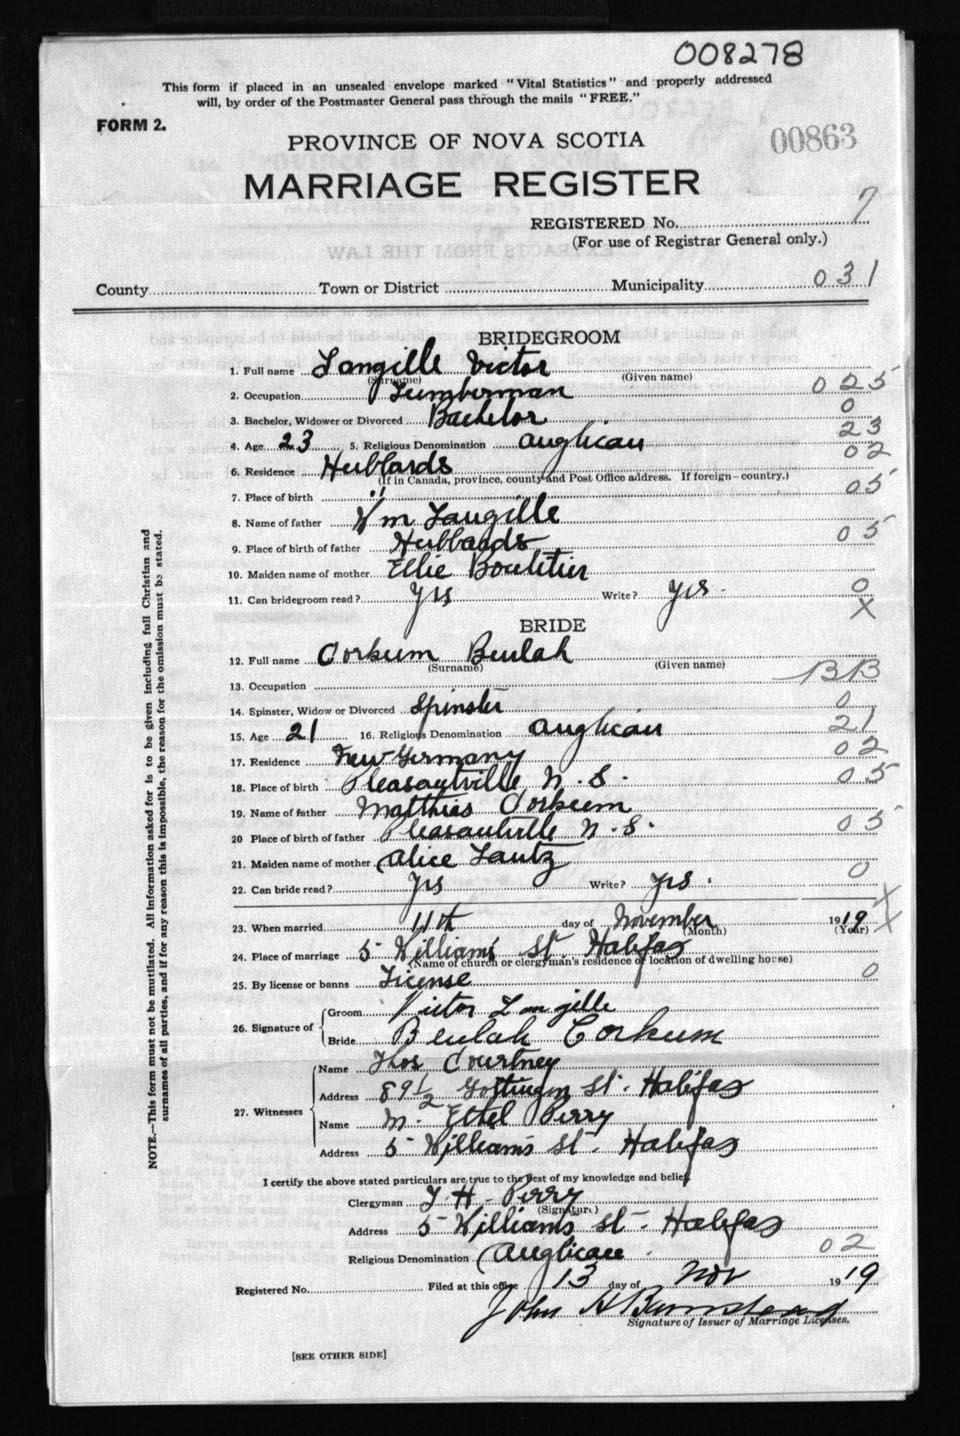 008278
This form if placed in an unsealed envelope marked "Vital Statistics" and properly addressed
will, by order of the Postmaster General pass through the mails "FREE."
FORM 2.
PROVINCE OF NOVA SCOTIA
00863
MARRIAGE REGISTER
REGISTERED No. 7
(For use of Registrar General only.)
County Town or District Municipality 031
BRIDEGROOM
1. Full name Langille Victor
(Surname) (Given name)
2. Occupation Lumberman 025
3. Bachelor, Widower or Divorced Bachelor 0
4. Age 23 5. Religious Denomination Anglican 23
6. Residence Hubbards 02
(If in Canada, province, county and Post Office address. If foreign—country.)
7. Place of birth " 05
8. Name of father Wm Langille
9. Place of birth of father Hubbards 05
10. Maiden name of mother Ellie Boutilier
11. Can bridegroom read? Yes Write? Yes. 0
X
BRIDE
12. Full name Corkum Beulah
(Surname) (Given name)
13. Occupation BB
14. Spinster, Widow or Divorced Spinster 0
15. Age 21 16. Religious Denomination Anglican 21
17. Residence New Germany 02
18. Place of birth Pleasantville N.S. 05
19. Name of father Matthias Corkum
20 Place of birth of father Pleasantville N.S. 05
21. Maiden name of mother Alice Lantz
22. Can bride read? Yes Write? Yes. 0
23. When married 11th day of November 1919 X
(Month) (Year) X
24. Place of marriage 5 Williams St. Halifax
(Name of church or clergyman's residence or location of dwelling house)
25. By license or banns License 0
26. Signature of Groom Victor Langille
Bride Beulah Corkum
27. Witnesses Name Thos Courtney
Address 89½ Gottingen St. Halifax
Name M. Ethel Perry
Address 5 Williams St. Halifax
I certify the above stated particulars are true to the best of my knowledge and belief.
Clergyman T H. Perry
(Signature)
Address 5 Williams St. Halifax
Religious Denomination Anglican 02
Registered No. Filed at this office 13 day of Nov 1919
John H Barnstead
Signature of Issuer of Marriage Licenses.
[SEE OTHER SIDE]
NOTE.—This form must not be mutilated. All information asked for is to be given including full Christian and
surnames of all parties, and if for any reason this is impossible, the reason for the omission must be stated.